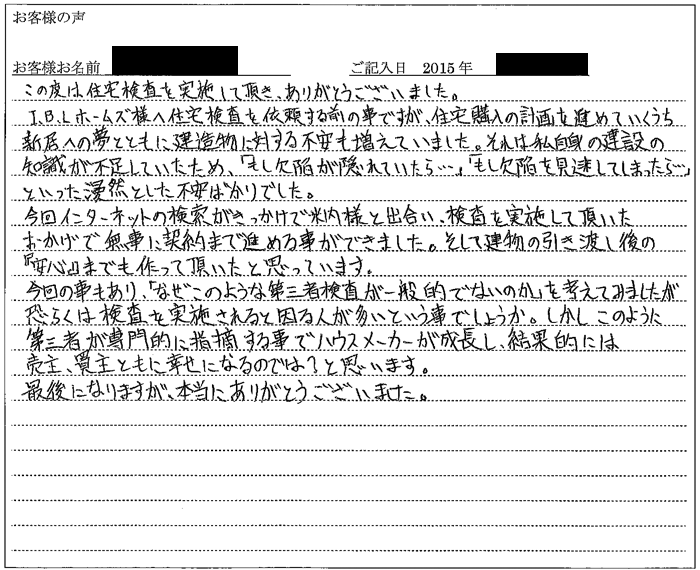 お客様の声
お客様お名前 ご記入日 2015年
この度は住宅検査を実施して頂き、ありがとうございました。
J.B.Lホームズ様へ住宅検査を依頼する前の事ですが、住宅購入の計画を進めていくうち
新居への夢とともに建造物に対する不安も増えていました。それは私自身の建設の
知識が不足していたため、「もし欠陥が隠れていたら…」「もし欠陥を見逃してしまったら…」
といった漫然とした不安ばかりでした。
今回インターネットの検索がきっかけで米内様と出合い、検査を実施して頂いた
おかげで無事に契約まで進める事ができました。そして建物の引き渡し後の
『安心』までも作って頂いたと思っています。
今回の事もあり、「なぜこのような第三者検査が一般的でないのか」を考えてみましたが
恐らくは検査を実施されると困る人が多いという事でしょうか。しかしこのように
第三者が専門的に指摘する事でハウスメーカーが成長し、結果的には
売主、買主ともに幸せになるのでは？と思います。
最後になりますが、本当にありがとうございました。